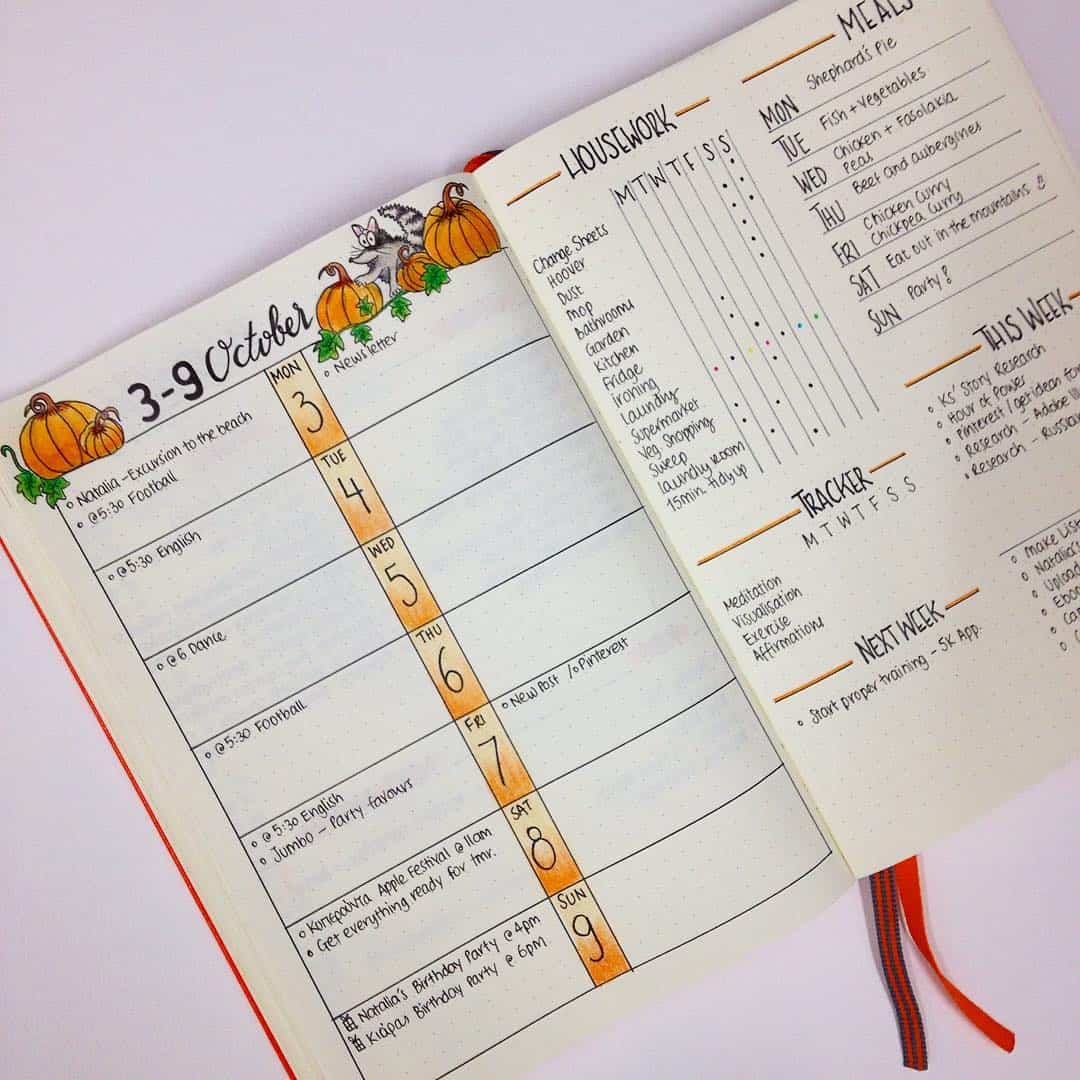 3-9 October
MON
3
Natalia - Excursion to the beach
@5:30 Football
Newsletter
TUE
4
@5:30 English
WED
5
@6 Dance
THU
6
@5:30 Football
FRI
7
@5:30 English
Jumbo - Party favours
New Post / Pinterest
SAT
8
Κυπερούντα Apple Festival @ 11am
Get everything ready for tmr.
SUN
9
Natalia's Birthday Party @ 4pm
Κιάρας Birthday Party @ 6pm
HOUSEWORK
M T W T F S S
Change Sheets
Hoover
Dust
Mop
Bathrooms
Garden
Kitchen
Fridge
Ironing
Laundry
Supermarket
Veg Shopping
Sweep
Laundry Room
15min. Tidy up
MEALS
MON Shephard's Pie
TUE Fish + Vegetables
WED Chicken + Fasolakia
Peas
THU Beef and aubergines
FRI Chicken Curry
Chickpea Curry
SAT Eat out in the mountains
SUN Party?
TRACKER
M T W T F S S
Meditation
Visualisation
Exercise
Affirmations
NEXT WEEK
Start proper training - 5K App.
THIS WEEK
KS' Story Research
Hour of Power
Pinterest / get ideas
Research - Adobe
Research -
Make
Natalia's
Upload